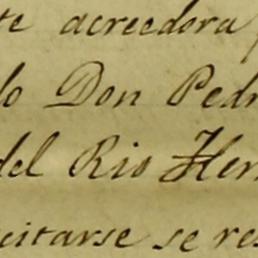 te acreedora
lo Don Pedr
del Rio Her
citarse se res